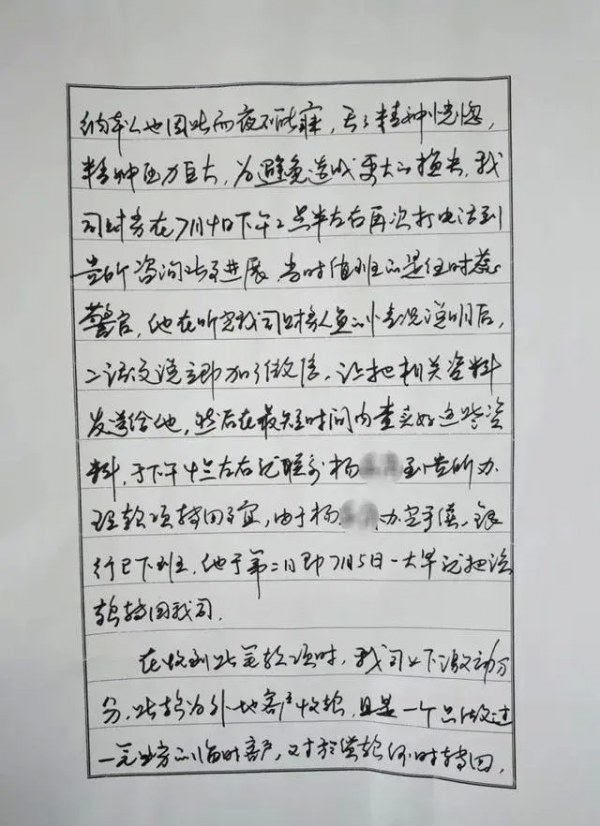 纳本人也因此而夜不能寐,天天精神恍惚,
精神压力巨大,为避免造成更大的损失,我
司财务在7月4日下午2点半左右再次打电话到
贵所咨询此事进展,当时值班的是任时
警官,他在听完我司财务人员的情况说明后,
二话没说立即加了微信,让把相关资料
发送给他,然后在最短时间内查实好这些资
料,于下午4点左右记联系杨 到贵所办
理款项转回事宜,由于杨 办完手续,银
行已下班,他于第二日即7月5日一大早就把该
款转回我司.
在收到此笔款项时,我司上下激动万
分,此款为外地客户收款,且是一个只做过
一笔业务的临时客户,对于该款何时转回,